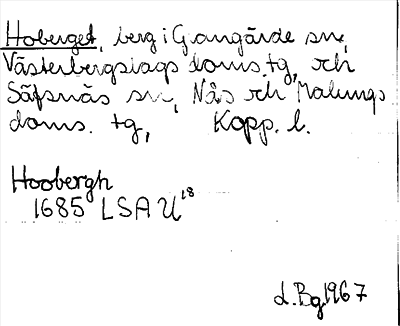 Hoberget, berg i Grangärde sn,
Västerbergslags doms. tg, och
Säfsnäs sn, Nås och Malungs
doms. tg, Kopp. l.
Hoobergh
1685 LSA U18
L.Bg 1967